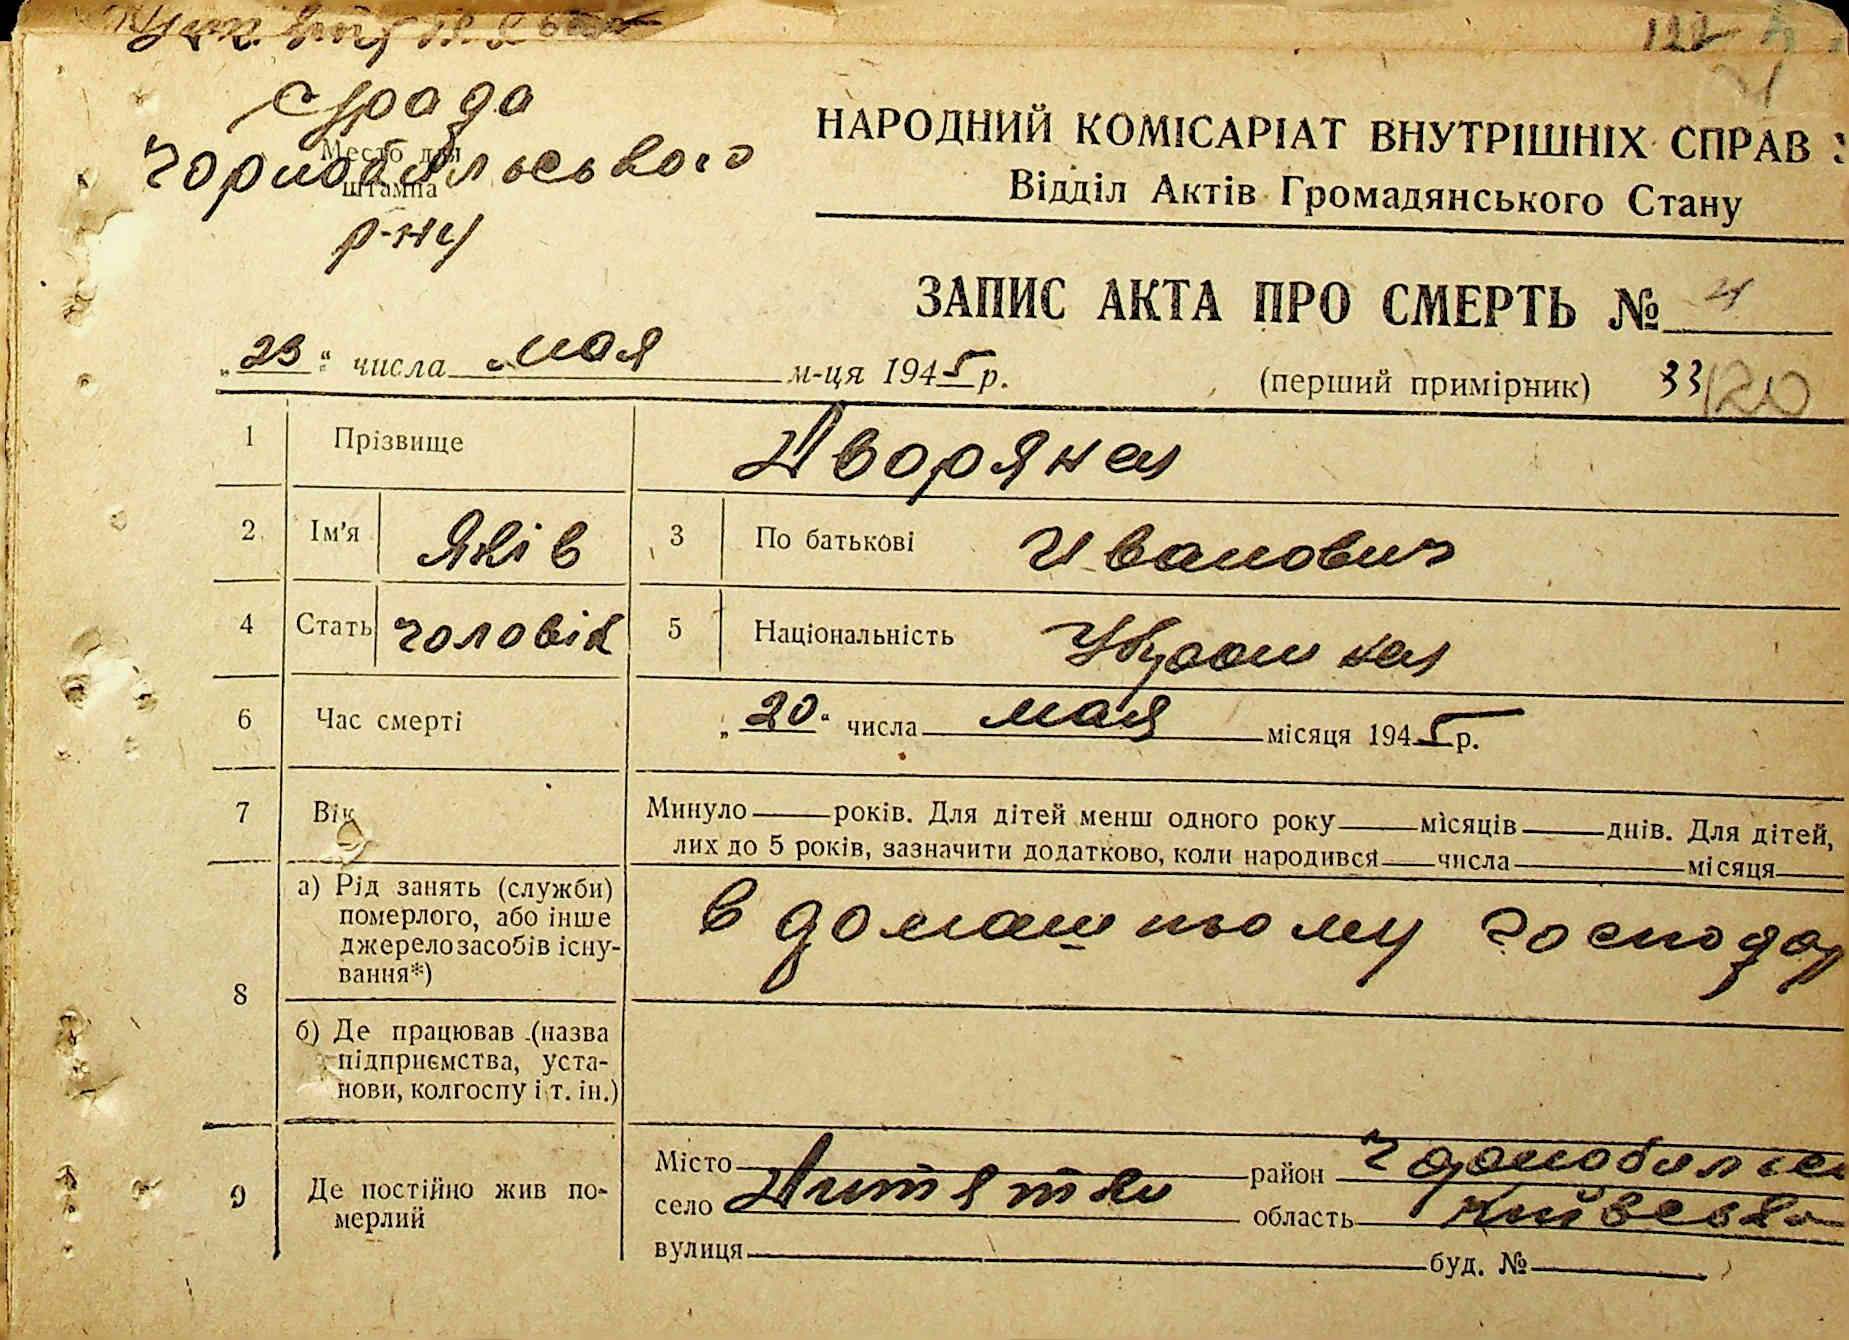 с/рада
Место для
Чорнобильського
штампа
р-ну
НАРОДНИЙ КОМІСАРІАТ ВНУТРІШНІХ СПРАВ
Відділ Актів Громадянського Стану
ЗАПИС АКТА ПРО СМЕРТЬ № 4
„23“ числа мая м-ця 1945 р. (перший примірник) 33 120
1 Прізвище Дворянец
2 Ім'я Яків 3 По батькові Иванович
4 Стать чоловік 5 Національність
6 Час смерті „20“ числа мая місяця 1945 р.
7 Вік Минуло років. Для дітей менш одного року місяців днів. Для дітей,
лих до 5 років, зазначити додатково, коли народився числа місяця
8 а) Рід занять (служби)
померлого, або інше
джерело засобів існу-
вання*)
в домашньому господар
б) Де працював (назва
підприємства, уста-
нови, колгоспу і т. ін.)
9 Де постійно жив по-
мерлий
Місто район Чорнобильсь
село Дитятки область Київська
вулиця буд. №